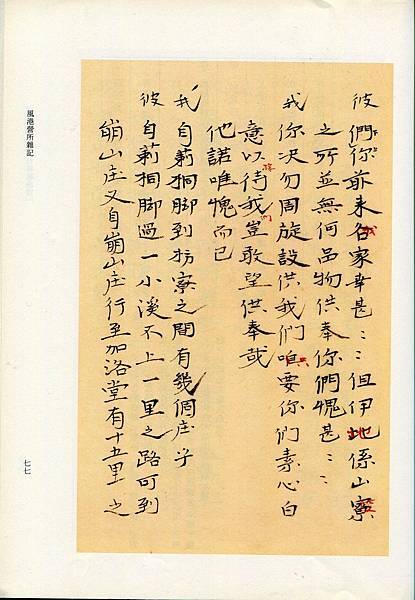 彼們你前來各家幸甚:: 但伊地係山寮
之所並無何品物供奉你們愧甚::
我 你決勿周旋設供我們咱要你们素心白
意以待我豈敢望供奉哉
他諾唯愧而已
我 自莿桐脚到枋寮之間有幾個庄子
彼 自莿桐脚過一小溪不上一里之路可到
崩山庄又自崩山庄行至加洛堂有十五里之
風港營所雜記
七七